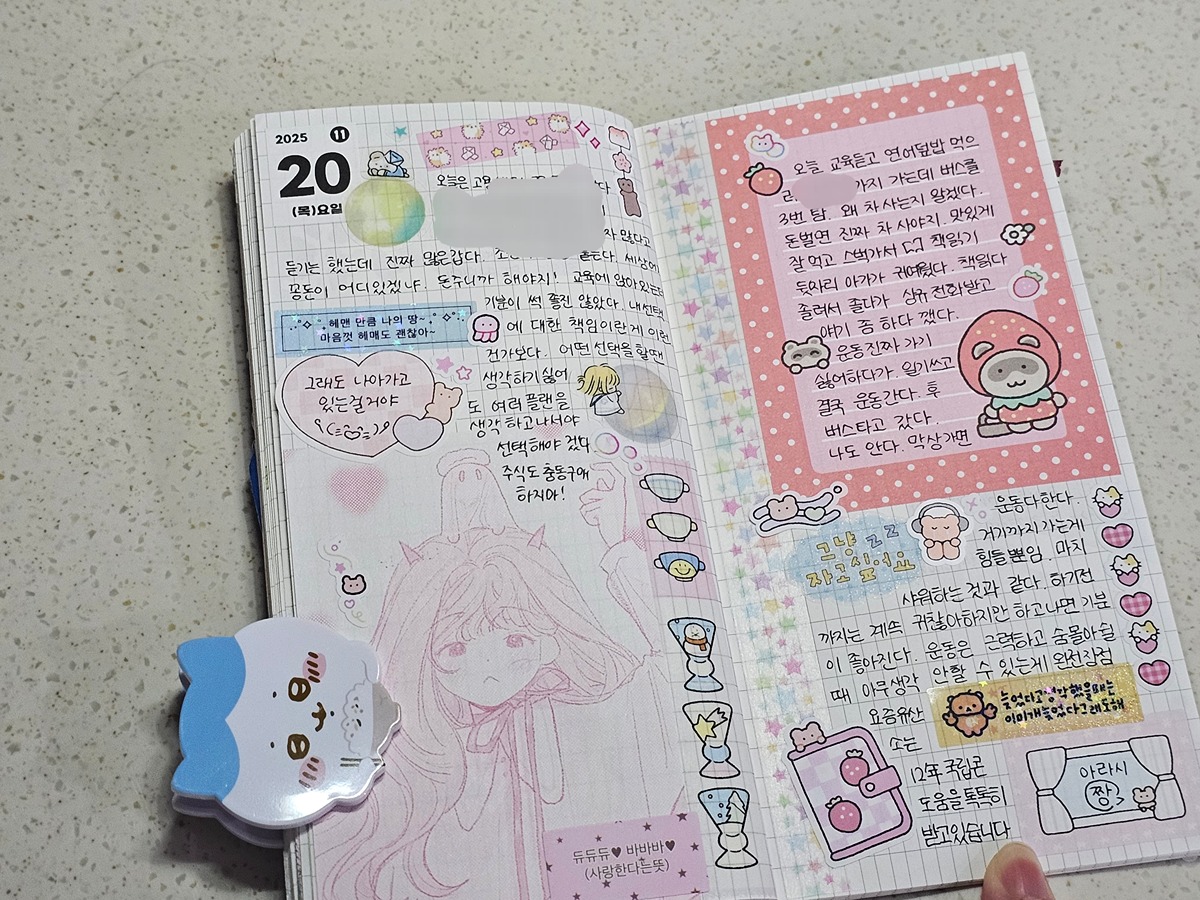 2025 11
20
(목)요일
오늘은 교육
다
자 않다고
듣기는 했는데 진짜 많은갑다. 세상에
꽁돈이 어디있겠냐. 돈주니까 해야지! 교육에 앉아있는데
기분이 썩 좋진 않았다. 내선택
에 대한 책임이란게 이런
건가보다. 어떤선택을 할때
생각하기싫어
도 여러플랜을
생각하고나서야
선택해야 겠다
주식도 충동구매
하지마!
헤맨 만큼 나의 땅~
마음껏 헤매도 괜찮아~
그래도 나아가고
있는걸거야
듀듀듀♥ 바바바♥
(사랑한다는뜻)
오늘 교육듣고 연어덮밥 먹으
러 까지 가는데 버스를
3번 탐. 왜 차사는지 알겠다.
돈벌면 진짜 차 사야지 맛있게
잘 먹고 스벅가서 책읽기
뒷자리 아가가 귀여웠다. 책읽다
졸려서 졸다가 전화받고
얘기 좀 하다 깼다.
운동진짜 가기
싫어하다가 일기쓰고
결국 운동간다. 후
버스타고 갔다.
나도 안다. 막상가면
운동다한다.
거기까지 가는게
힘들뿐임 마치
샤워하는 것과 같다. 하기전
까지는 계속 귀찮아하지만 하고나면 기분
이 좋아진다. 운동은 근력하고 숨몰아쉴
때 아무생각 안할 수 있는게 완전장점
요즘유산
소는
12年 국립콘
도움을 톡톡히
받고있습니다
그냥 zz
자고싶어요
늦었다고생각했을때는
이미개늦었다그래도해
아라시
짱3